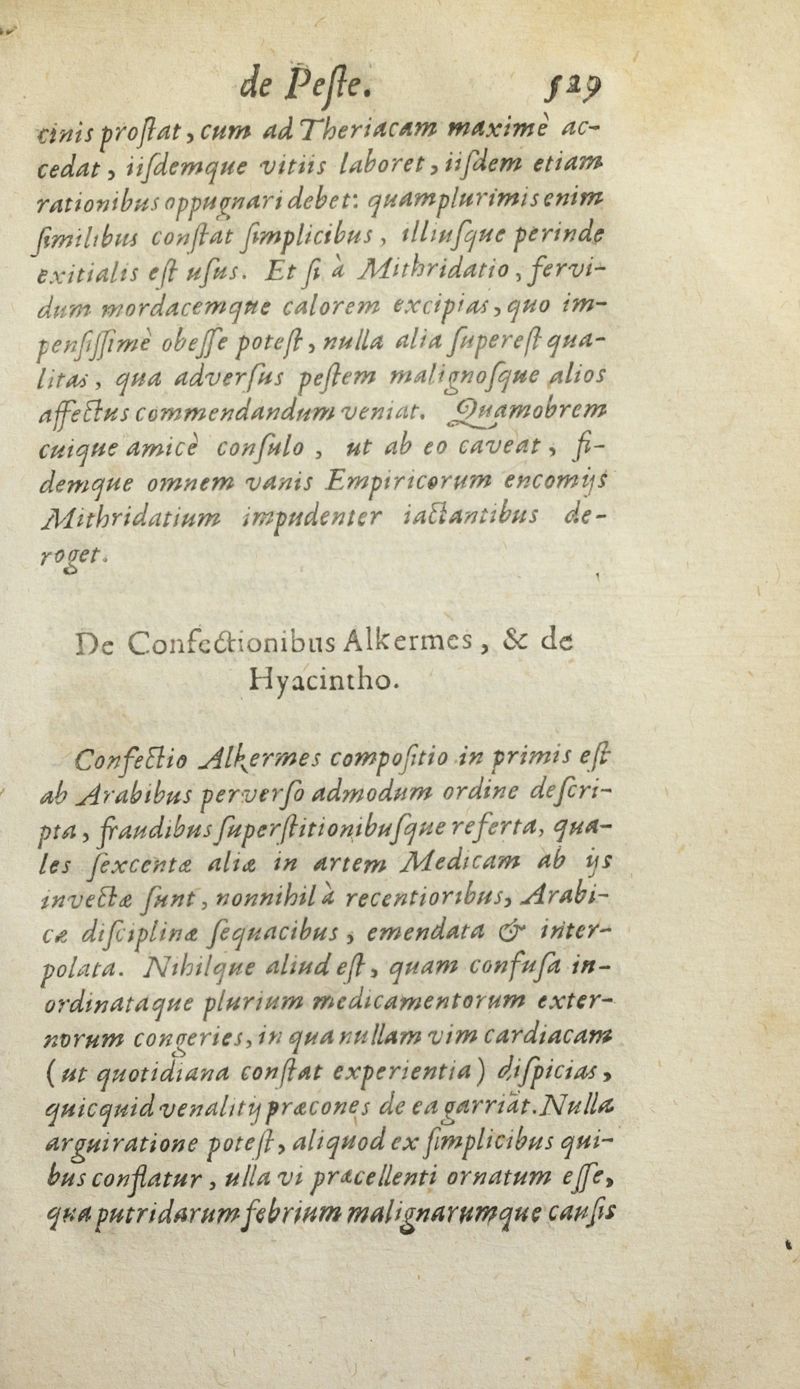 de Peſte. 529
cinis proſtat, cum ad Theriacam maximè ac-
cedat, iiſdemque vitiis laboret, iiſdem etiam
rationibus oppugnari debet: quamplurimis enim
ſimilibus conſtat ſimplicibus, illiuſque perinde
exitialis eſt uſus. Et ſi à Mithridatio, fervi-
dum mordacemque calorem excipias, quo im-
penſiſſimè obeſſe poteſt, nulla alia ſupereſt qua-
litas, qua adverſus peſtem malignoſque alios
affectus commendandum veniat. Quamobrem
cuique amicè conſulo, ut ab eo caveat, fi-
demque omnem vanis Empiricorum encomijs
Mithridatium impudenter iactantibus de-
roget.
De Confectionibus Alkermes, & de
Hyacintho.
Confectio Alkermes compoſitio in primis eſt
ab Arabibus perverſo admodum ordine deſcri-
pta, fraudibus ſuperſtitionibuſque referta, qua-
les ſexcentæ aliæ in artem Medicam ab ijs
invectæ ſunt, nonnihil à recentioribus, Arabi-
cæ diſciplinæ ſequacibus, emendata & inter-
polata. Nihilque aliud eſt, quam confuſa in-
ordinataque plurium medicamentorum exter-
norum congeries, in qua nullam vim cardiacam
(ut quotidiana conſtat experientia) diſpicias,
quicquid venalitij præcones de ea garriāt. Nulla
argui ratione poteſt, aliquod ex ſimplicibus qui-
bus conflatur, ulla vi præcellenti ornatum eſſe,
qua putridarum febrium malignarumque cauſis